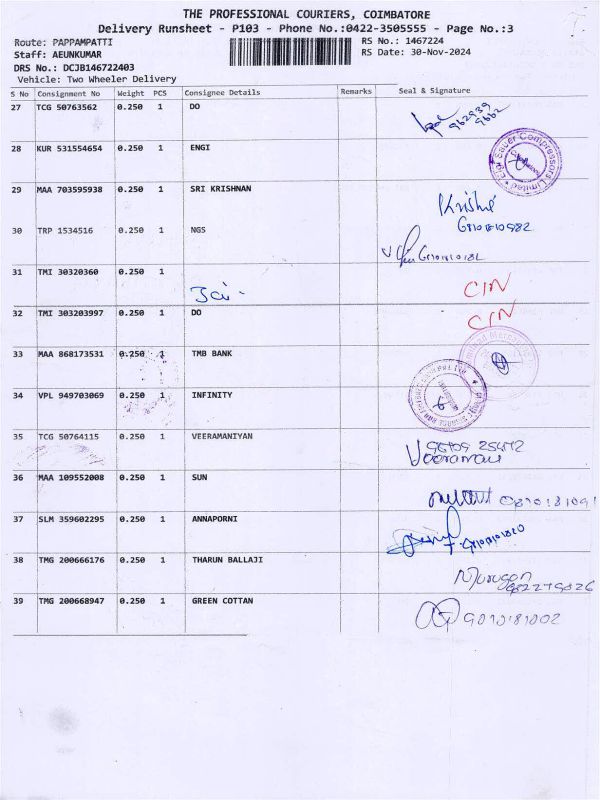 THE PROFESSIONAL COURIERS, COIMBATORE
Delivery Runsheet - P103 - Phone No.:0422-3505555 - Page No.:3
Route: PAPPAMPATTI
RS No.: 1467224
Staff: AEUNKUMAR
RS Date: 30-Nov-2024
DRS No.: DCJB146722403
Vehicle: Two Wheeler Delivery
S No Consignment No Weight PCS Consignee Details Remarks Seal & Signature
27 TCG 50763562 0.250 1 DO
28 KUR 531554654 0.250 1 ENGI
Sauer Compressors Limited
29 MAA 703595938 0.250 1 SRI KRISHNAN
Krishna
30 TRP 1534516 0.250 1 NGS
31 TMI 30320360 0.250 1
Jai -
CIN
32 TMI 303203997 0.250 1 DO
CIN
33 MAA 868173531 0.250 1 TMB BANK
34 VPL 949703069 0.250 1 INFINITY
35 TCG 50764115 0.250 1 VEERAMANIYAN
36 MAA 109552008 0.250 1 SUN
37 SLM 359602295 0.250 1 ANNAPORNI
38 TMG 200666176 0.250 1 THARUN BALLAJI
Murugan
39 TMG 200668947 0.250 1 GREEN COTTAN